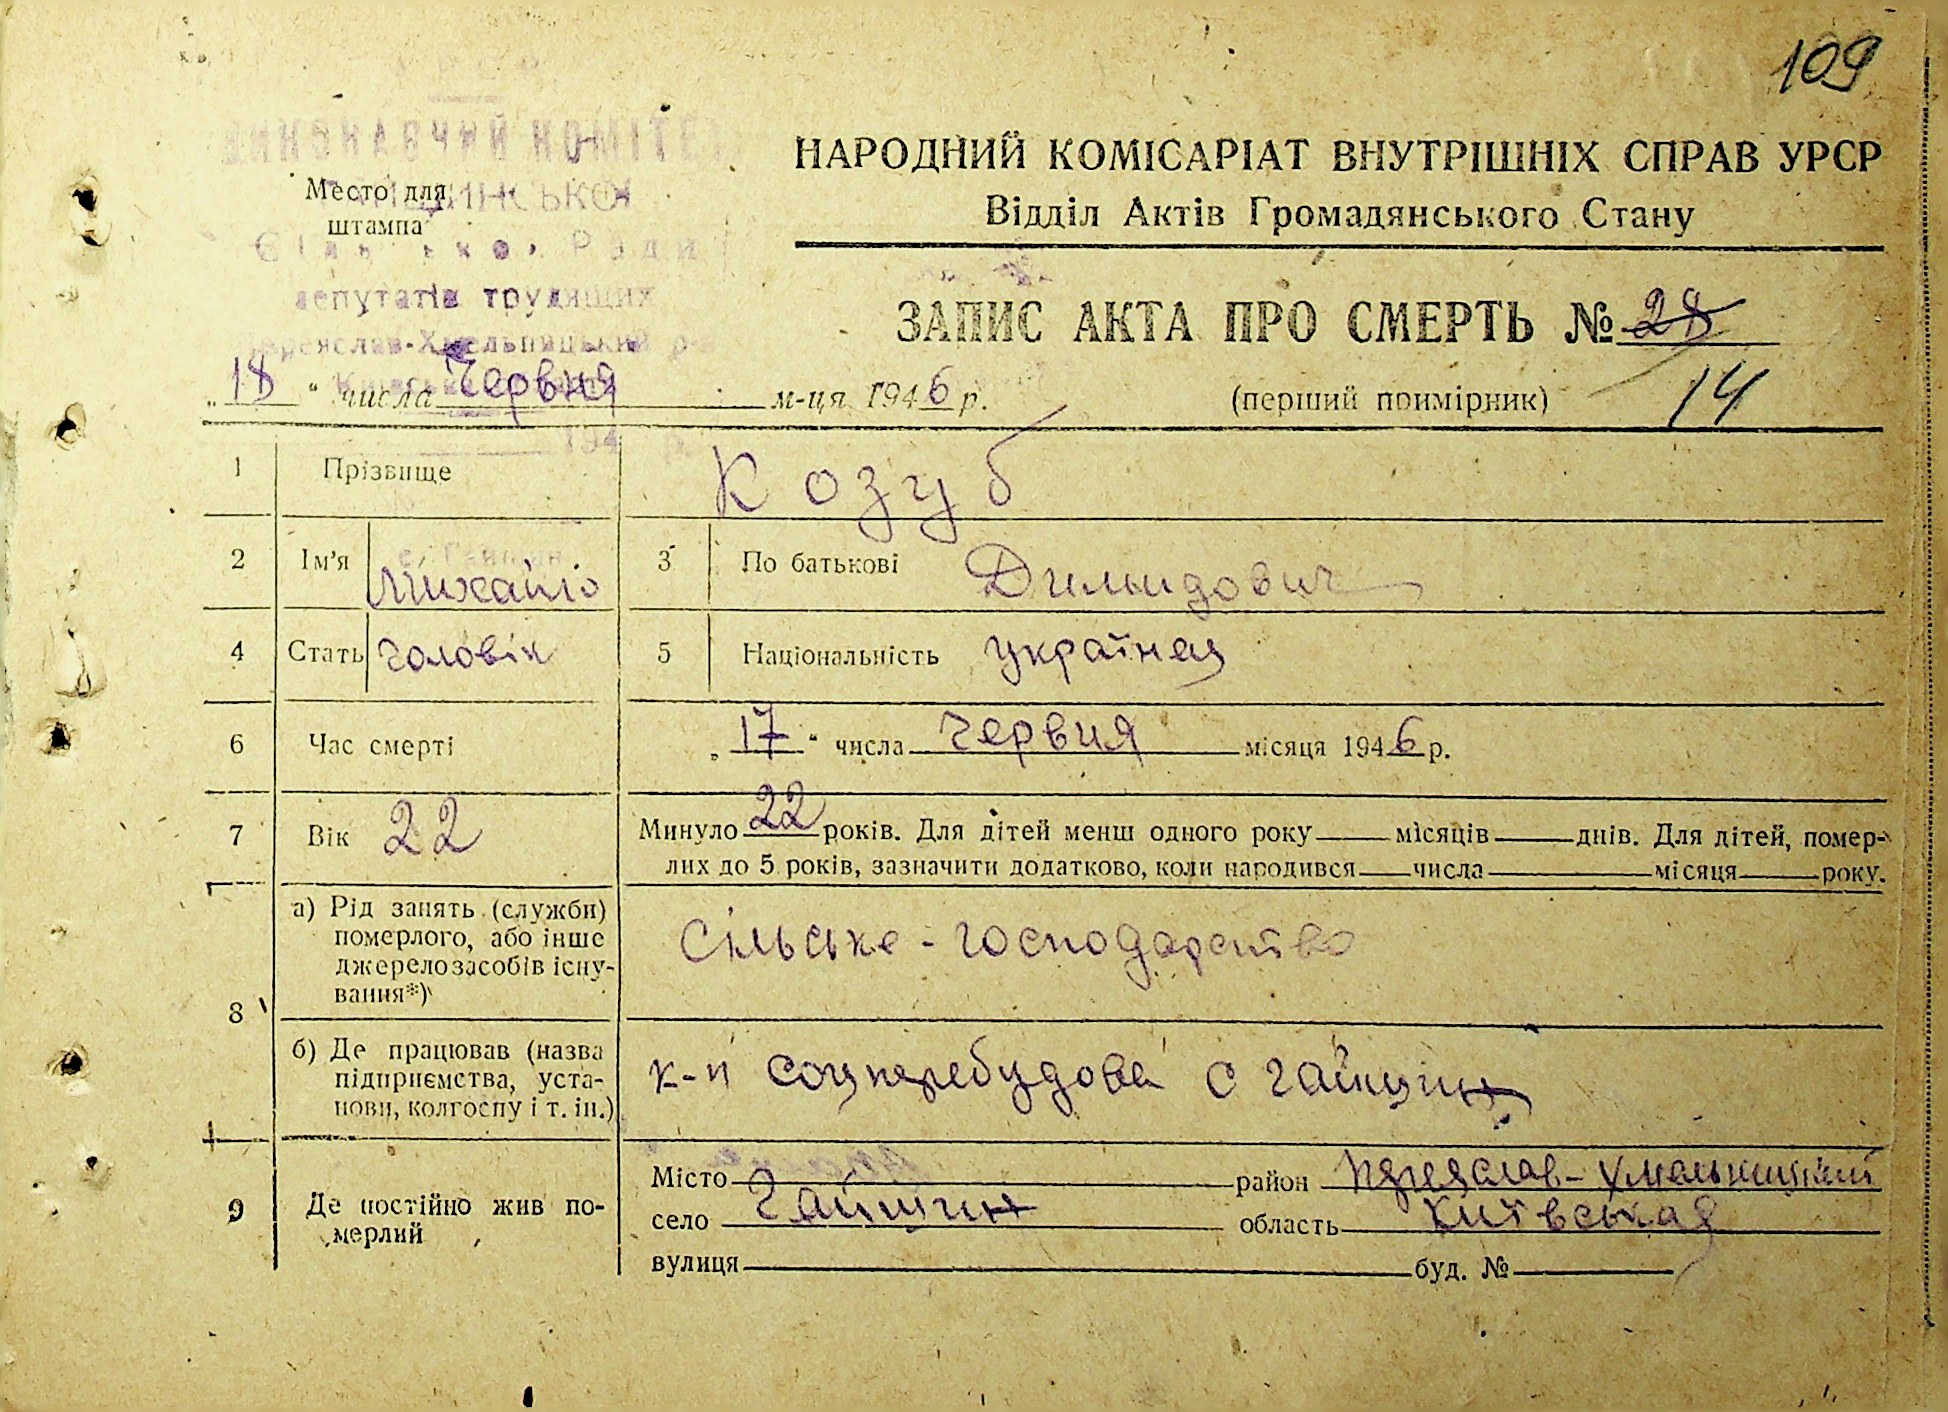 109
ВИКОНАВЧИЙ КОМІТЕ
НАРОДНИЙ КОМІСАРІАТ ВНУТРІШНІХ СПРАВ УРСР
Место для
штампа
Відділ Актів Громадянського Стану
Ради
депутатів трудящих
ЗАПИС АКТА ПРО СМЕРТЬ № 28
Переяслав-Хмельницький р-
„18 “ числа Червня м-ця 1946 р.
(перший примірник) 14
194 р.
1 Прізвище Козуб
2 Ім'я Михайло 3 По батькові Димидович
4 Стать чоловік 5 Національність україная
6 Час смерті „17“ числа червня місяця 1946 р.
7 Вік 22 Минуло 22 років. Для дітей менш одного року місяців днів. Для дітей, помер-
лих до 5 років, зазначити додатково, коли народився числа місяця року.
8 а) Рід занять (служби)
померлого, або інше
джерело засобів існу-
вання*)
Сільське-господарство
б) Де працював (назва
підприємства, уста-
нови, колгоспу і т. ін.)
к-п соцперебудова с Гайшин
9 Де постійно жив по-
мерлий
Місто район Переяслав-Хмельницкий
село Гайшин область Київськая
вулиця буд. №